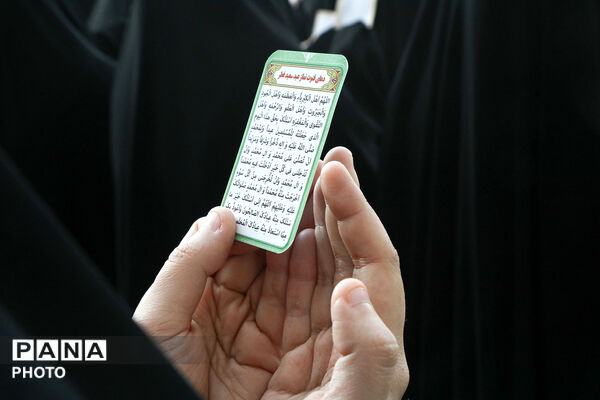 دعای قنوت نماز عید سعید فطر
اَللّهُمَّ اَهْلَ الْکِبْرِیاءِ وَالْعَظَمَةِ وَاَهْلَ الْجُودِ
وَالْجَبَرُوتِ وَاَهْلَ الْعَفْوِ وَالرَّحْمَةِ وَاَهْلَ
التَّقْوى وَالْمَغْفِرَةِ اَسْئَلُکَ بِحَقِّ هذَا الْیَوْمِ
الَّذى جَعَلْتَهُ لِلْمُسْلِمینَ عیداً وَلِمُحَمَّدٍ
صَلَّى اللهُ عَلَیْهِ وَ الِهِ ذُخْراً وَشَرَفاً وَمَزیداً
اَنْ تُصَلِّىَ عَلى مُحَمَّدٍ وَ الِ مُحَمَّدٍ وَاَنْ
تُدْخِلَنى فى کُلِّ خَیْرٍ اَدْخَلْتَ فیهِ مُحَمَّداً
وَ الَ مُحَمَّدٍ وَاَنْ تُخْرِجَنى مِنْ کُلِّ سُوءٍ
اَخْرَجْتَ مِنْهُ مُحَمَّداً وَ الَ مُحَمَّدٍ صَلَواتُکَ
عَلَیْهِ وَعَلَیْهِمْ اَللّهُمَّ اِنّى اَسْئَلُکَ خَیْرَ ما
سَئَلَکَ مِنْهُ عِبادُکَ الصّالِحُونَ وَاَعُوذُ بِکَ
مِمَّا اسْتَعاذَ مِنْهُ عِبادُکَ
PANA
PHOTO